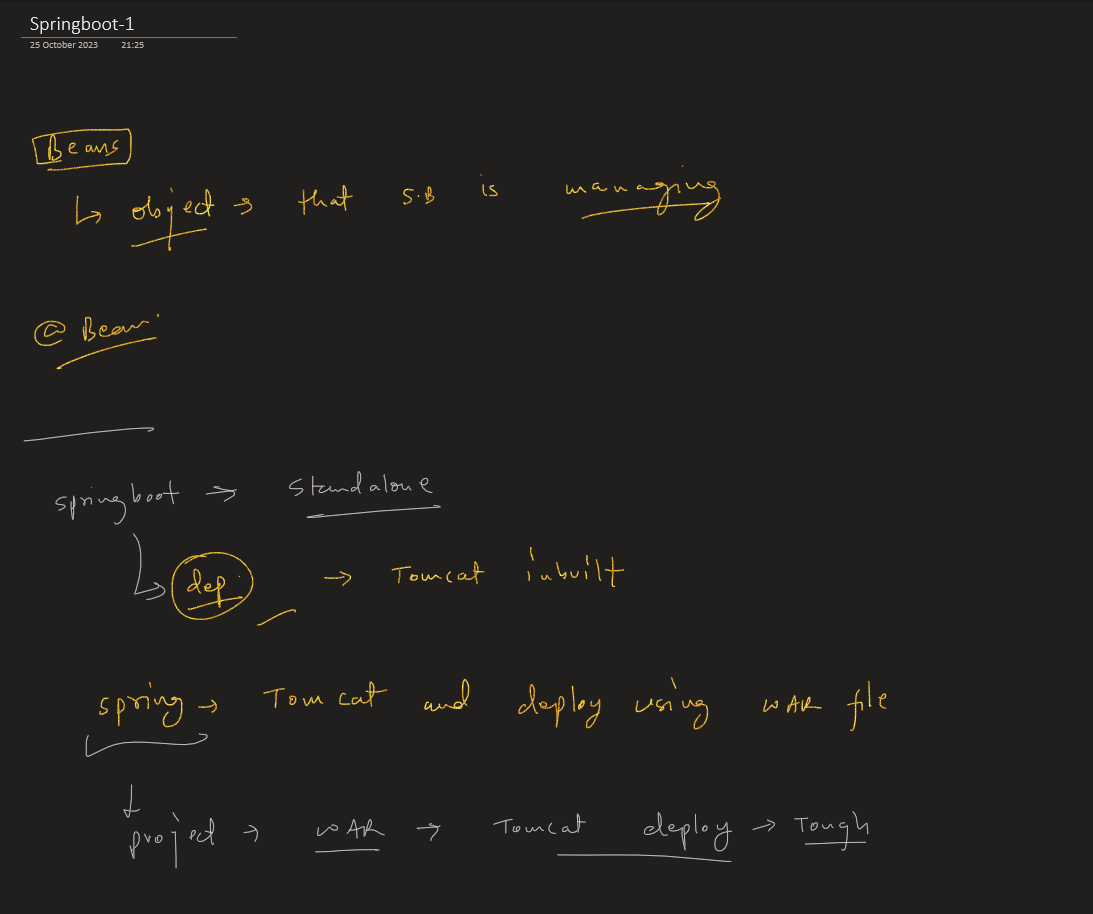 Springboot-1
25 October 2023 21:25
Beans
↳ object → that S.B is managing
@Bean
springboot → Standalone
↳ dep. → Tomcat inbuilt
spring → Tomcat and deploy using WAR file
↓
project → WAR → Tomcat deploy → Tough